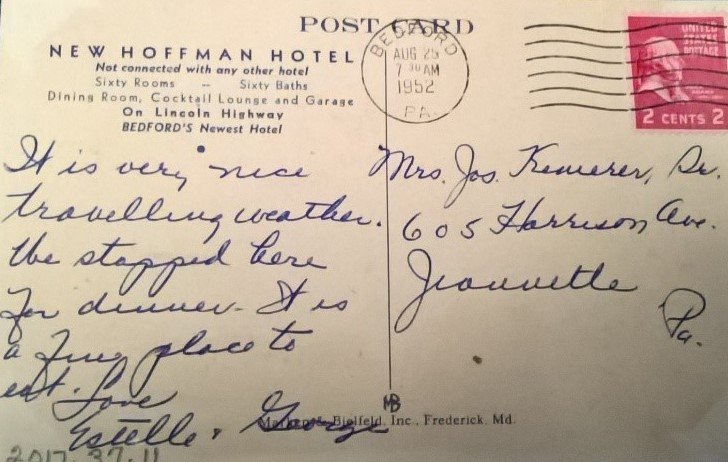 POST CARD
NEW HOFFMAN HOTEL
Not connected with any other hotel
Sixty Rooms -- Sixty Baths
Dining Room, Cocktail Lounge and Garage
On Lincoln Highway
BEDFORD'S Newest Hotel
BEDFORD
AUG 25
7 30 AM
1952
PA.
UNITED
STATES
POSTAGE
2 CENTS 2
It is very nice
travelling weather.
We stopped here
for dinner - It is
a fine place to
eat. Love
Estelle & George
Mrs. Jos. Kemerer, Sr.
605 Harrison Ave.
Jeannette
Pa.
MB
Bielfeld, Inc., Frederick, Md.
2017.37.11